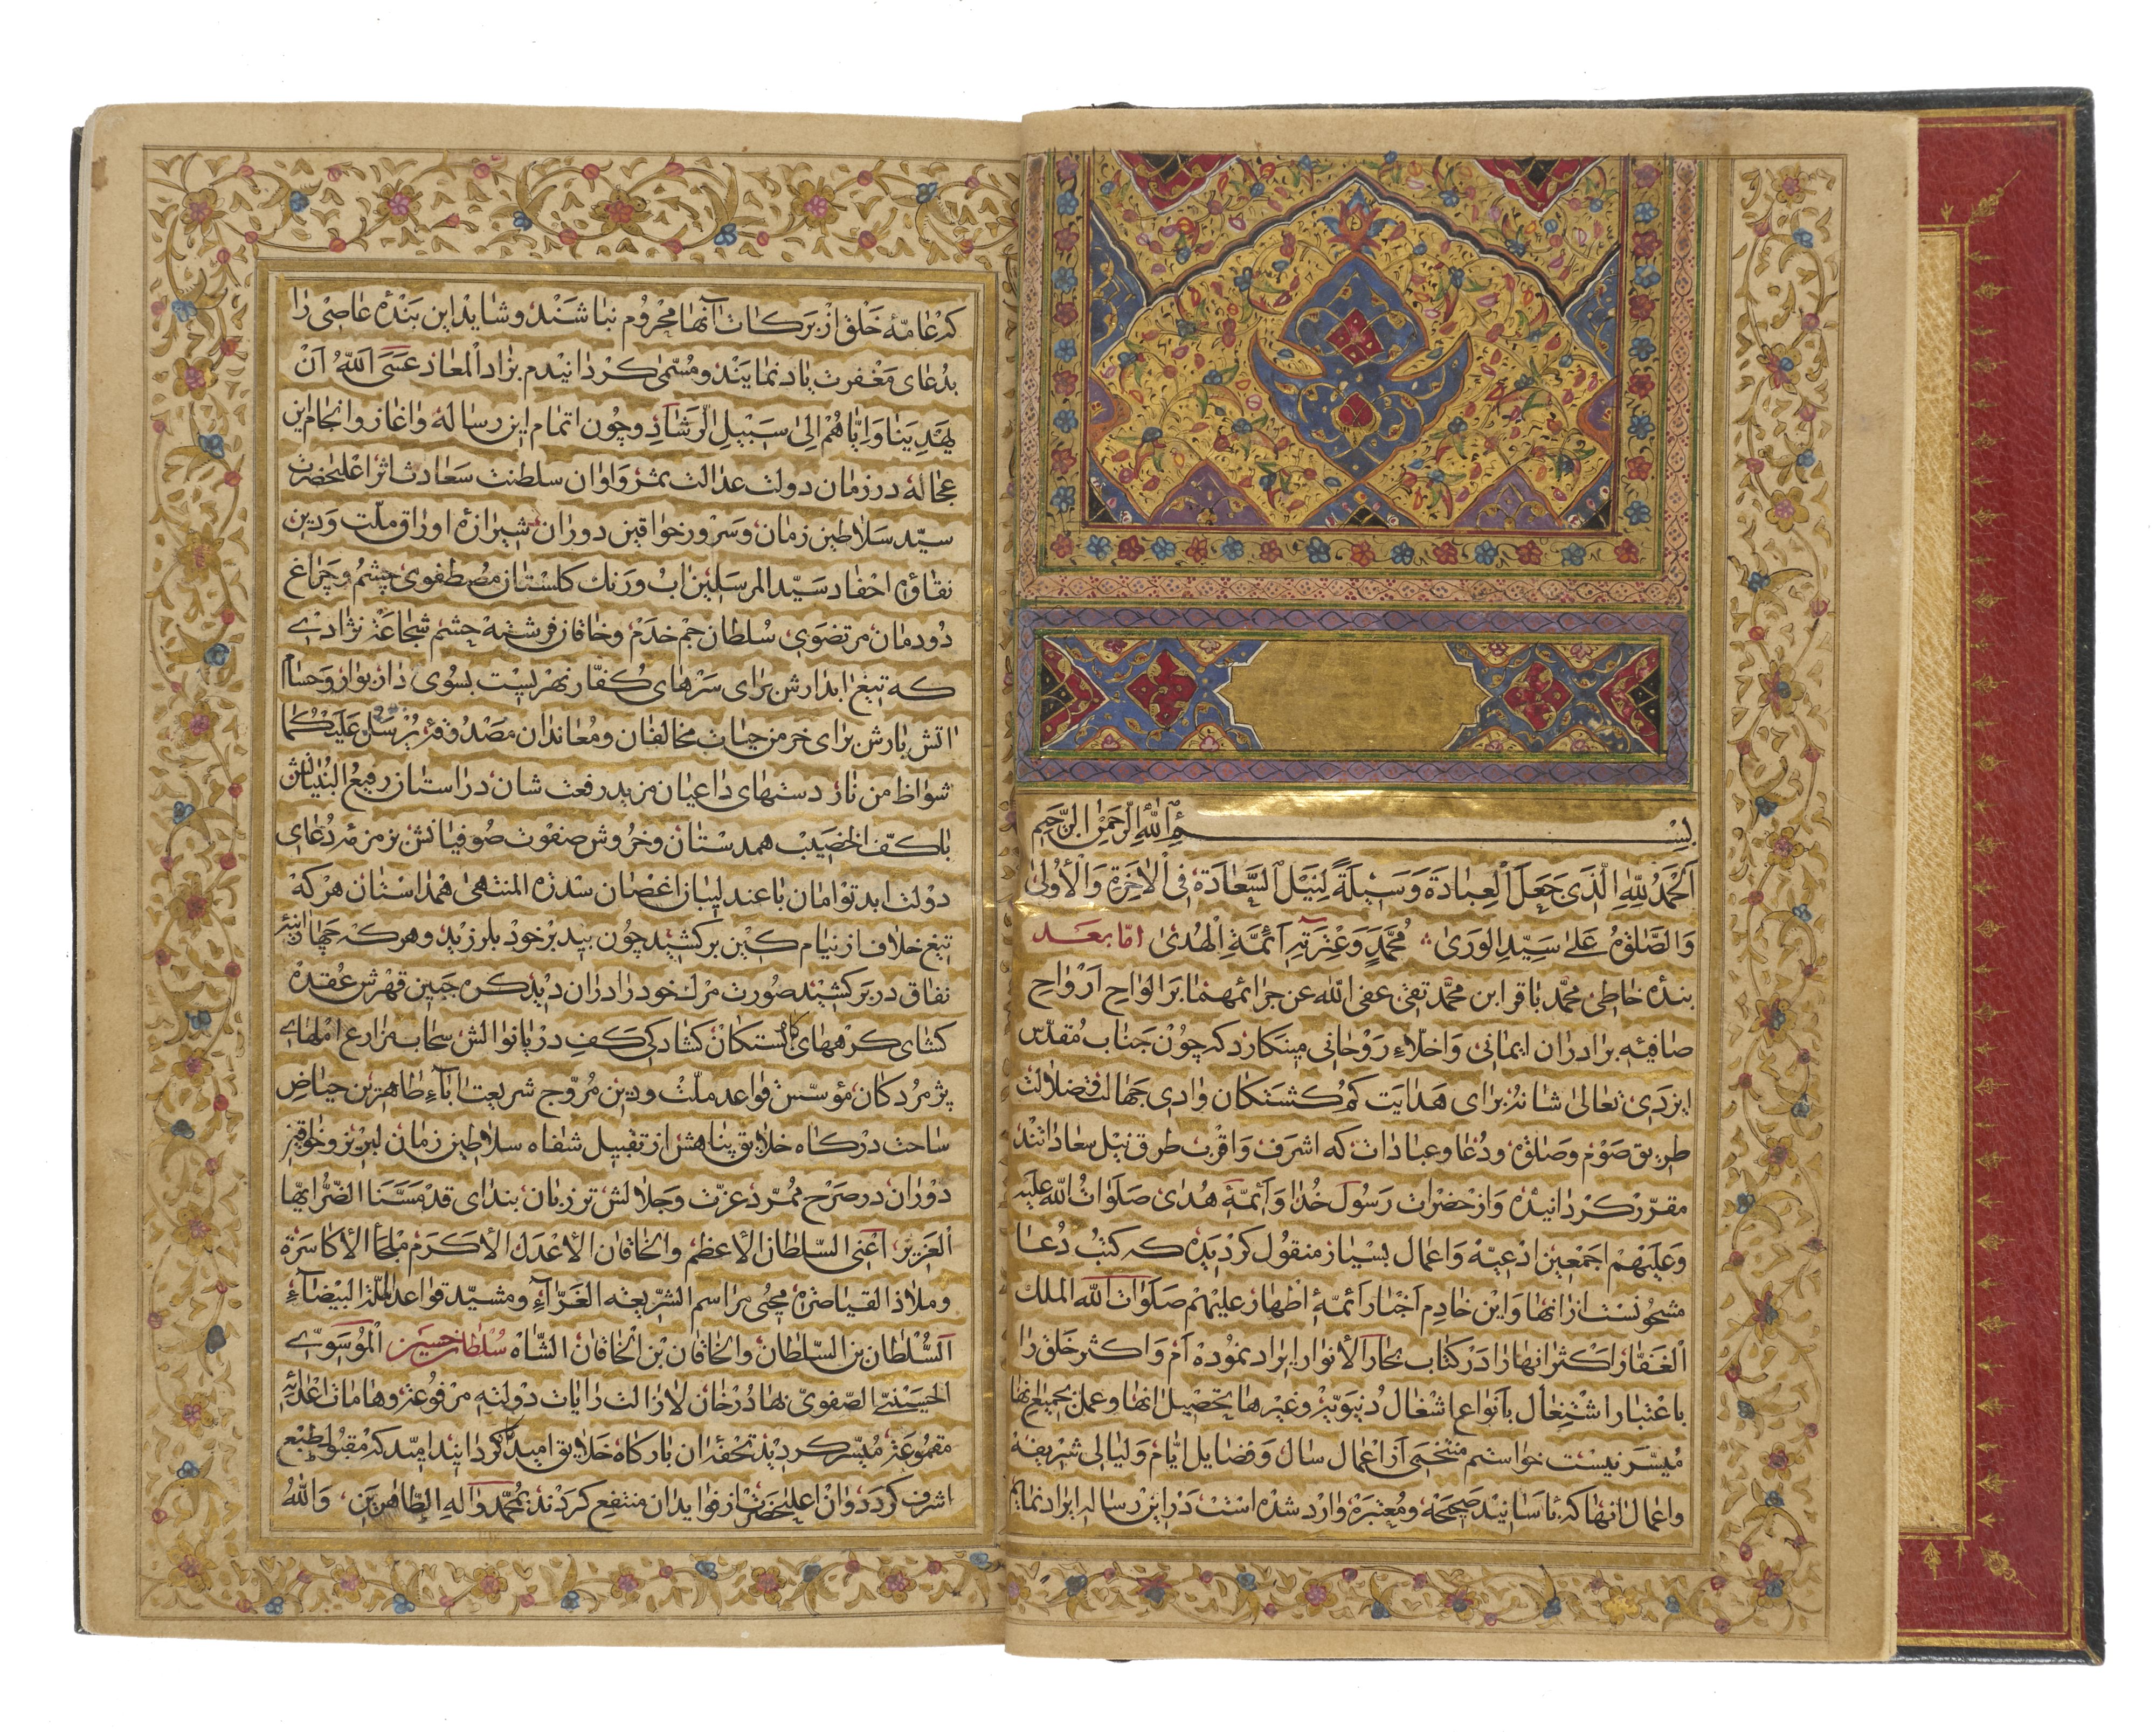 بسم الله الرحمن الرحیم
اَلْحَمْدُ لِلّٰهِ الَّذی جَعَلَ الْعِبادَةَ وَسیلَةً لِنَیْلِ السَّعادَةِ فِی الْاٰخِرَةِ وَالْأُولیٰ
وَالصَّلوٰةُ عَلیٰ سَیِّدِ الوَریٰ مُحَمَّدٍ وَعِتْرَتِهِ اَئِمَّةِ الْهُدیٰ امّا بعد
بنده خاطی محمّد باقر ابن محمّد تقی عفی الله عن جرائمهما بر الواح ارواح
صافیه برادران ایمانی و اخلاء روحانی مینکارد که چون جناب مقدّس
ایزدی تعالی شانه برای هدایت کم کشتکان وادی جهالت و ضلالت
طریق صوم و صلوة و دعا و عبادات که اشرف و اقرب طرق نیل سعاداتند
مقرّر کردانیده و از حضرات رسول خدا و ائمّهٔ هدی صلوات الله علیه
و علیهم اجمعین ادعیّه و اعمال بسیار منقول کردیده که کتب دعا
مشحونست از انها و این خادم اخبار ائمّهٔ اطهار علیهم صلوات الله الملک
الغفّار اکثر انها را در کتاب بحار الأنوار ایراد نموده ام و اکثر خلق را
باعتبار اشتغال بانواع اشغال دنیویّه و غیرها تحصیل انها و عمل بجمیع انها
میسّر نیست خواستم منتخبی از اعمال سال و فضایل ایّام و لیالی شریفه
و اعمال انها که باسانید صحیحه و معتبره وارد شده است در این رساله ایراد نمایم
که عامّهٔ خلق از برکات آنها محروم نباشند و شاید این بندهٔ عاصی را
بدعای مغفرت یاد نمایند و مسمّی کردانیدم بزاد المعاد عَسَی اللّهُ اَنْ
یَهْدِیَنا وَاِیّاهُمْ اِلیٰ سَبیلِ الرَّشادِ و چون اتمام این رساله و اغاز و انجام این
عجاله در زمان دولت عدالت ثمر و اوان سلطنت سعادت اثر اعلیحضرت
سیّد سلاطین زمان و سرور خواقین دوران شیرازه اوراق ملّت و دین
نقاوه احفاد سیّد المرسلین اب و رنک کلستان مصطفوی چشم و چراغ
دودمان مرتضوی سلطان جم خدم و خاقان فرشته حشم شجاعت نژادی
که تیغ ابدارش برای سرهای کفّار نهریست بسوی دار بوار و حسام
اتش بارش برای خرمن حیات مخالفان و معاندان مصدوقه یرسل علیکما
شواظ من نار دستهای داعیان مزید رفعت شان در استان رفیع البنیانش
با کفّ الخضیب همدستان و خروش صفوت صوفیانش بزمزمه دعای
دولت ابد توامان با عندلیبان اغصان سدره المنتهی همداستان هر که
تیغ خلاف از نیام کین برکشید چون بید بر خود بلرزید و هر که چهار آئینه
نفاق در بر کشید صورت مرک خود را در ان دید کره جبین قهرش عقده
کشای کرههای کار بستکان کشادکی کف دریا نوالش سحاب مزارع املهای
پژمردکان مؤسّس قواعد ملّت و دین مروّج شریعت اباء طاهرین حیاض
ساحت درکاه خلایق پناهش از تقبیل شفاه سلاطین زمان لبریز و خواقین
دوران در صرح ممرّد عزّت و جلالش تر زبان بندای قد مسّنا الضّر ایّها
العزیز اعنی السّلطان الأعظم و الخاقان الأعدل الأکرم ملجأ الأکاسرة
و ملاذ القیاصره محیی مراسم الشّریعه الغرّاء و مشیّد قواعد الملّة البیضاء
السّلطان بن السّلطان و الخاقان بن الخاقان الشّاه سلطان حسین الموسویّ
الحسینیّ الصّفویّ بهادر خان لا زالت رایات دولته مرفوعة و هامات اعدائه
مقموعة میسّر کردید تحفهٔ ان بارکاه خلایق امیدکاه کردانید امید که مقبول طبع
اشرف کردد و ان اعلیحضرت از فواید ان منتفع کردند بمحمّد و اله الطّاهرین و الله